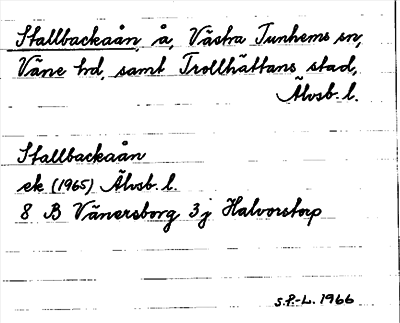 Stallbackaån, å, Västra Tunhems sn,
Väne hd, samt Trollhättans stad,
Älvsb. l.
Stallbackaån
ek (1965) Älvsb. l.
8 B Vänersborg 3j Halvorstorp
S.P.-L. 1966